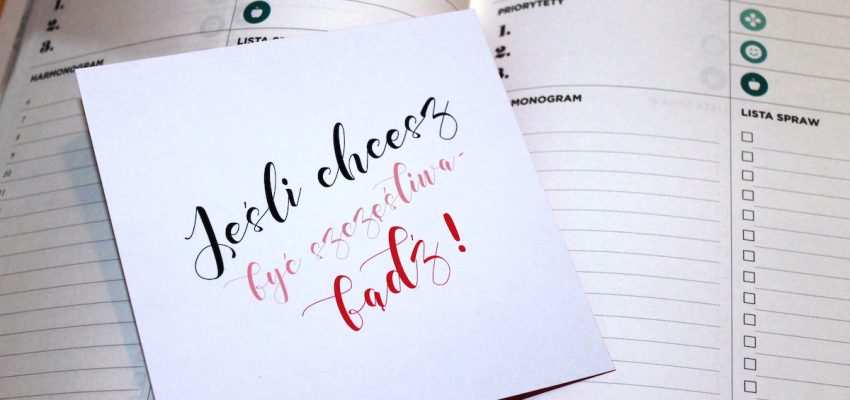 1.
2.
3.
HARMONOGRAM
9
10
11
LISTA SPRAW
Jeśli chcesz
być szczęśliwa-
bądź!
PRIORYTETY
1.
2.
3.
MONOGRAM
LISTA SPRAW